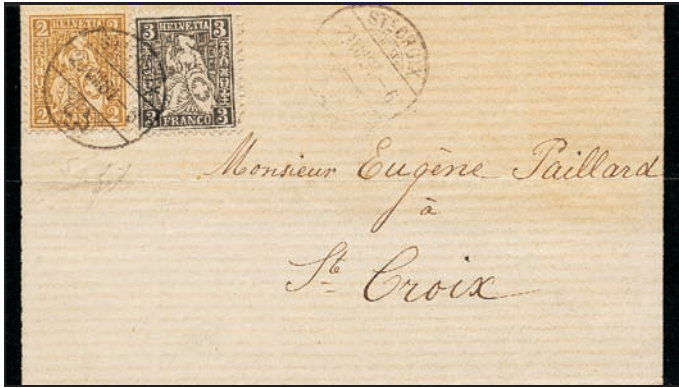 HELVETIA HELVETIA
2 2 3 3
2 2 3 3
FRANCO
STE CROIX
Monsieur Eugène Paillard
à
Ste Croix